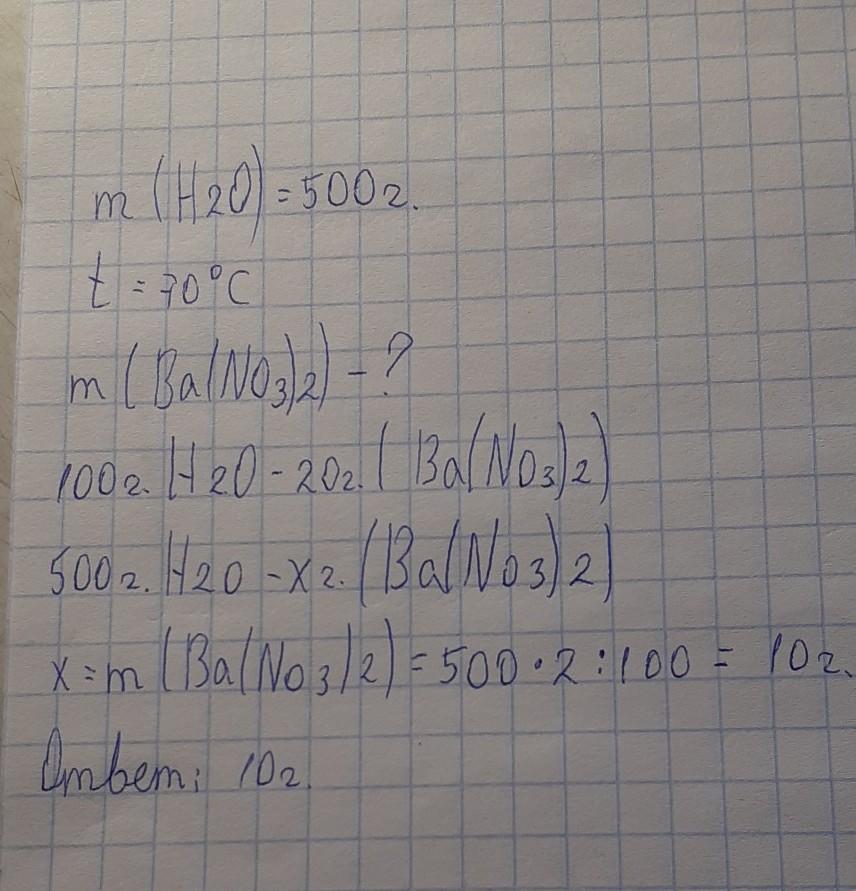 m (H2O) = 500г.
t = 70°C
m (Ba(NO3)2) - ?
100г. H2O - 20г. ( Ba(NO3)2)
500г. H2O - xг. (Ba(NO3)2)
x = m (Ba(NO3)2) = 500 · 2 : 100 = 10г.
Ответ: 10г.